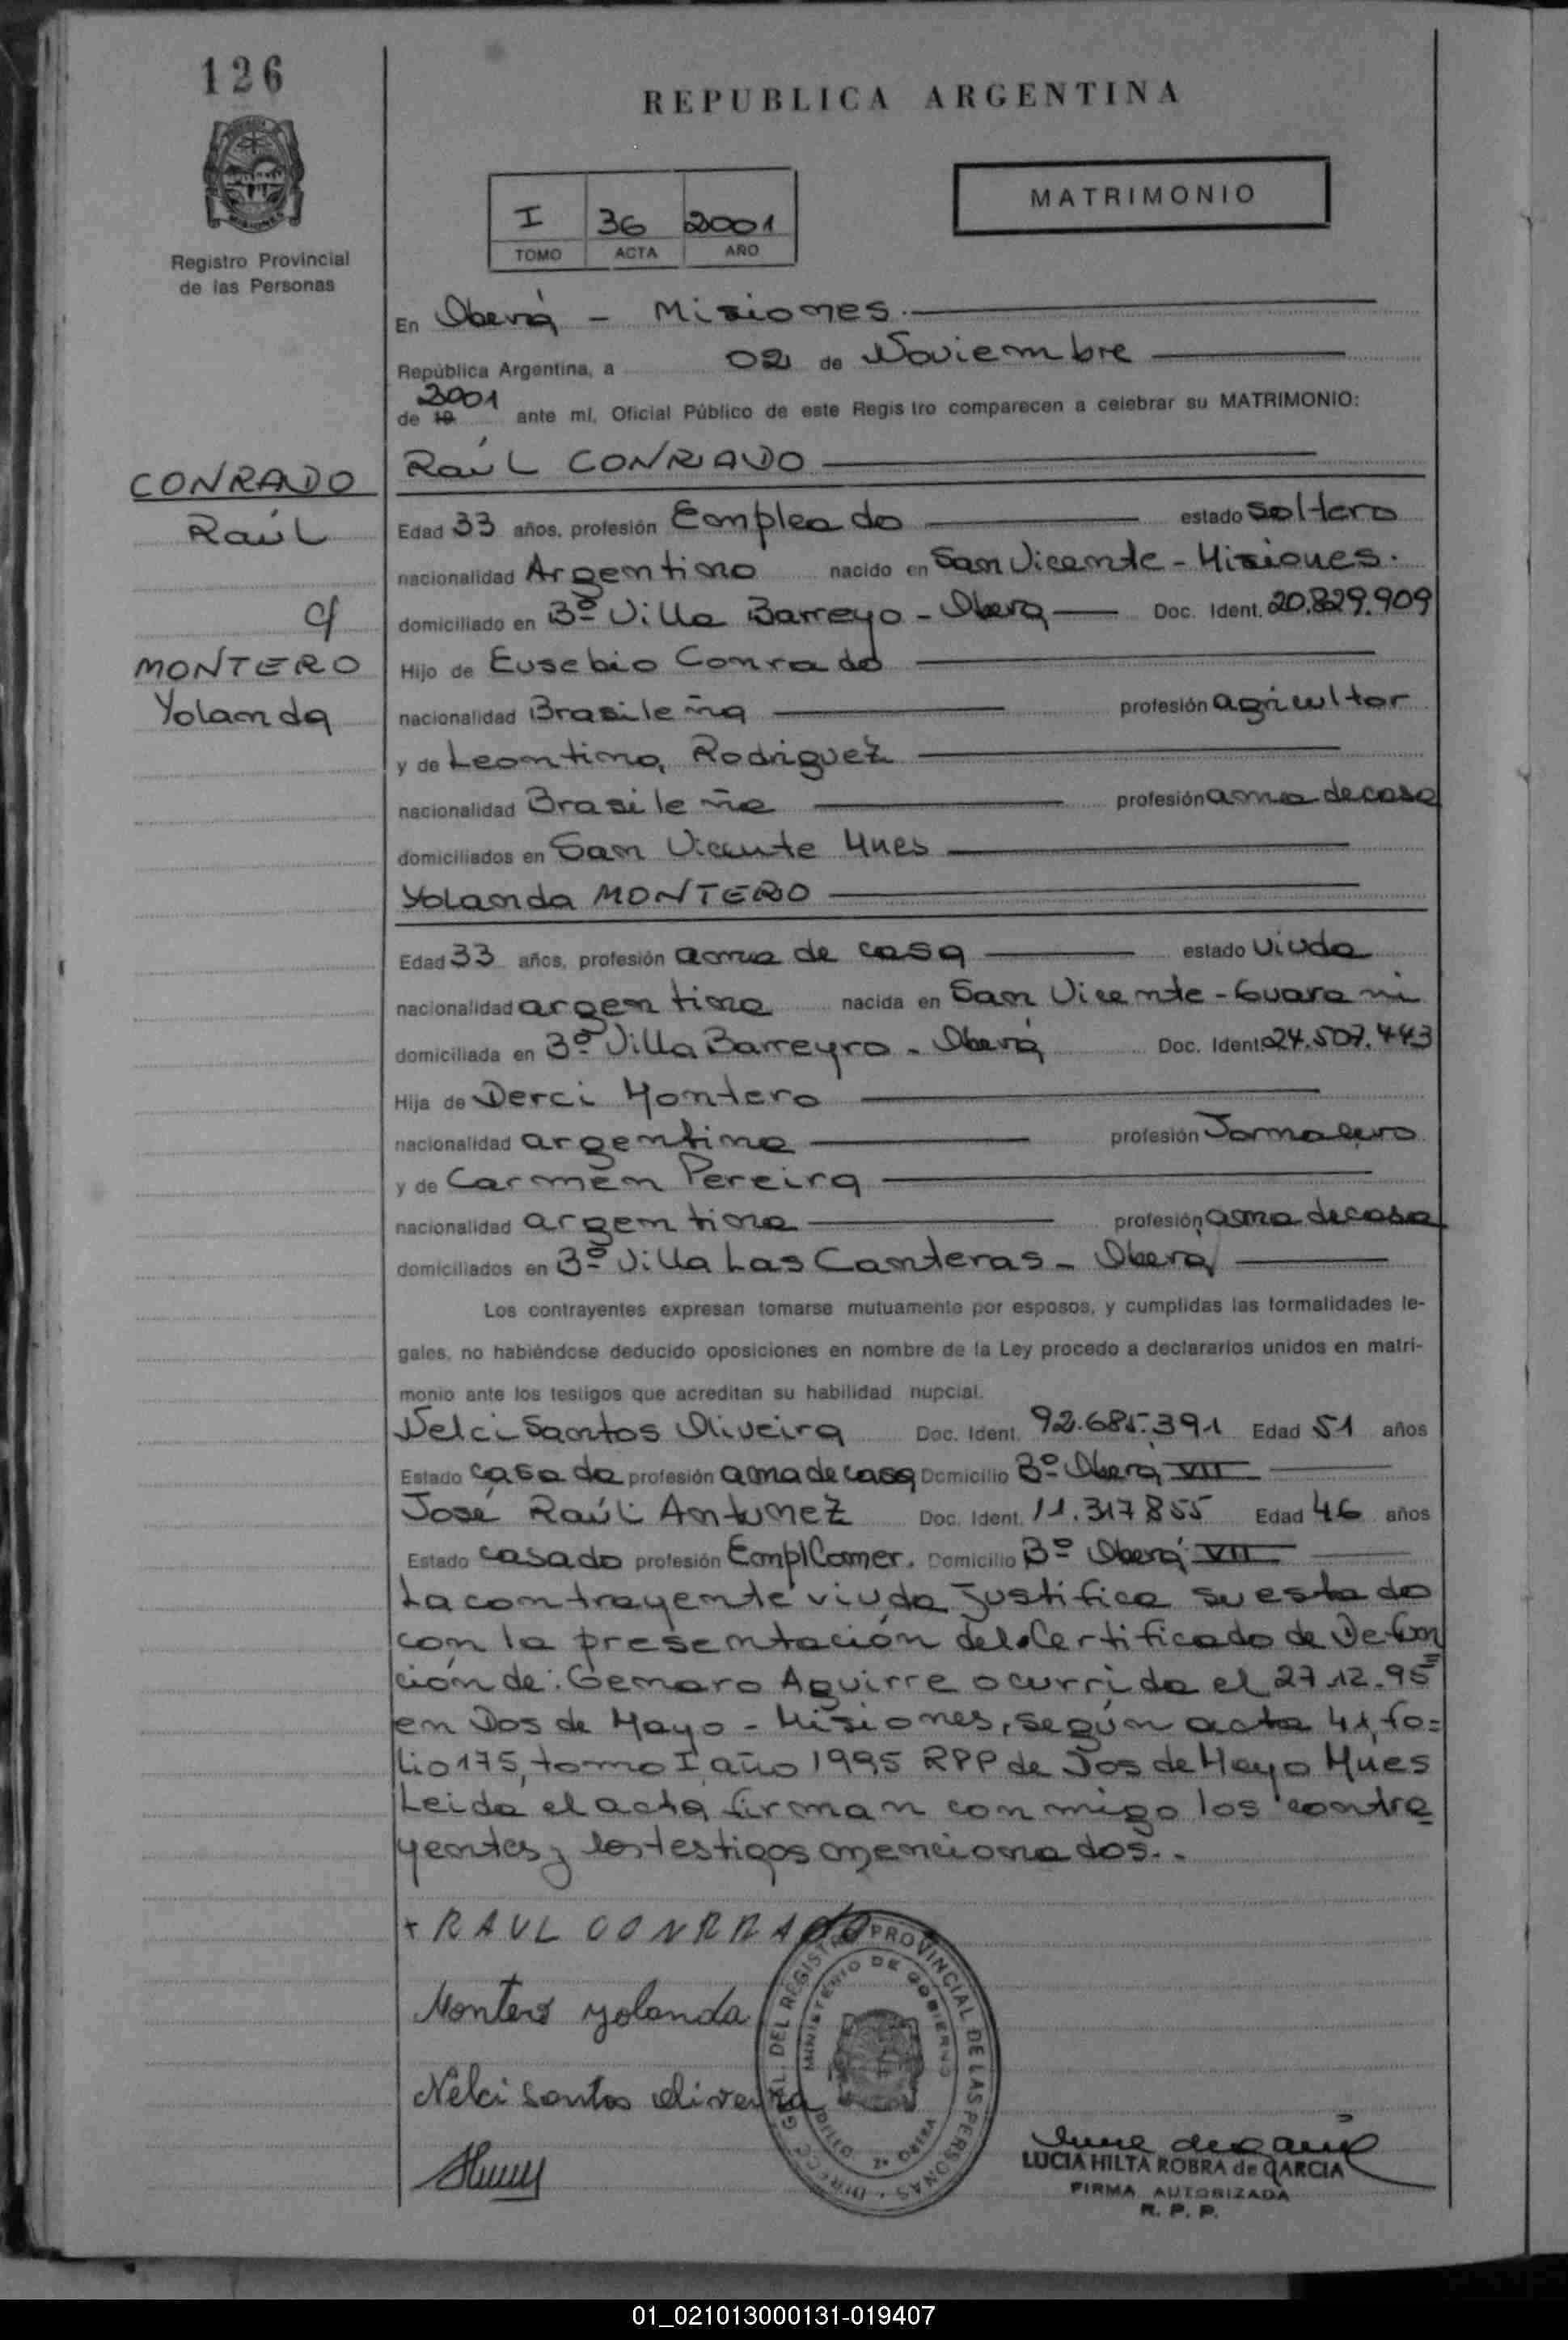 126
REPUBLICA ARGENTINA
MATRIMONIO
I 36 2001
TOMO ACTA AÑO
Registro Provincial
de las Personas
En Oberá - Misiones.
República Argentina, a 02 de Noviembre
2001
de 19 ante mí, Oficial Público de este Registro comparecen a celebrar su MATRIMONIO:
CONRADO
Raúl
c/
MONTERO
Yolanda
Raúl CONRADO
Edad 33 años, profesión Empleado estado soltero
nacionalidad Argentino nacido en San Vicente - Misiones.
domiciliado en Bº Villa Barreyo - Oberá Doc. Ident. 20.829.909
Hijo de Eusebio Conrado
nacionalidad Brasileña profesión agricultor
y de Leontina Rodriguez
nacionalidad Brasileña profesión ama de casa
domiciliados en San Vicente Mnes
Yolanda MONTERO
Edad 33 años, profesión ama de casa estado viuda
nacionalidad argentina nacida en San Vicente - Guarani
domiciliada en Bº Villa Barreyro - Oberá Doc. Ident. 24.507.443
Hija de Derci Montero
nacionalidad argentina profesión Jornalero
y de Carmen Pereira
nacionalidad argentina profesión ama de casa
domiciliados en Bº Villa Las Canteras - Oberá
Los contrayentes expresan tomarse mutuamente por esposos, y cumplidas las formalidades le-
gales, no habiéndose deducido oposiciones en nombre de la Ley procedo a declararlos unidos en matri-
monio ante los testigos que acreditan su habilidad nupcial.
Nelci Santos Oliveira Doc. Ident. 92.685.391 Edad 51 años
Estado casada profesión ama de casa Domicilio Bº Oberá VII
José Raúl Antunez Doc. Ident. 11.317855 Edad 46 años
Estado casado profesión Empl Comer. Domicilio Bº Oberá VII
La contrayente viuda justifica su estado
con la presentación del Certificado de Defun
ción de: Genaro Aguirre ocurrida el 27.12.95
en Dos de Mayo - Misiones, según acta 41, fo=
lio 175, tomo I, año 1995 RPP de Dos de Mayo Mnes
Leida el acta firman conmigo los contra
yentes y los testigos mencionados..
+ RAUL CONRRADO
Montero yolanda
Nelci Santos Oliveira
DIRECC. GRAL. DEL REGISTRO PROVINCIAL DE LAS PERSONAS
MINISTERIO DE GOBIERNO
LUCIA HILTA ROBRA de GARCIA
FIRMA AUTORIZADA
R. P. P.
01_021013000131-019407